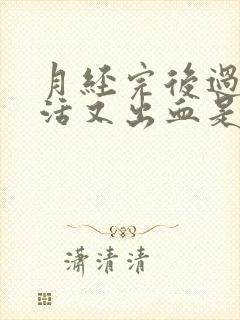 月经完後過
活又出血是
潇清清